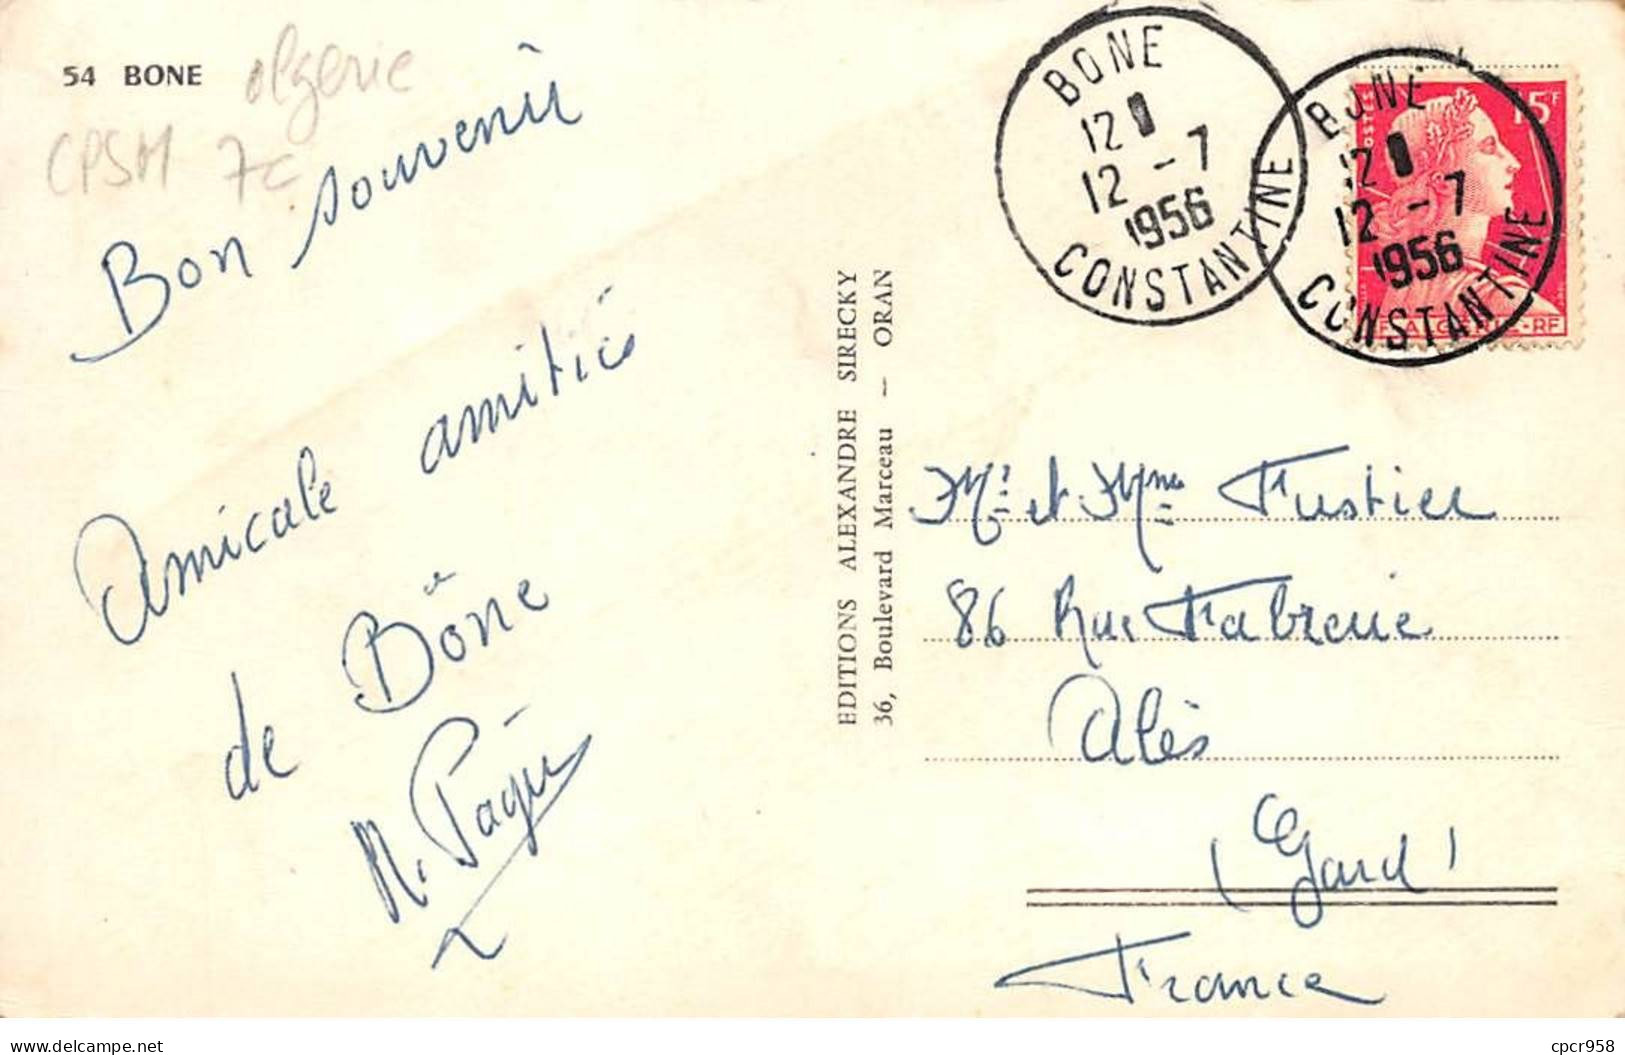 54 BONE
Algerie
CPSM 7c
Bon souvenir
Amicale amitiés
de Bône
EDITIONS ALEXANDRE SIRECKY
36, Boulevard Marceau — ORAN
BONE
12
12 -7
1956
CONSTANTINE
BONE
12
12 -7
1956
CONSTANTINE
POSTES
15F
ALGERIE-RF
Mr. et Mme Fustier
86 Rue Fabrerie
Alès
(Gard)
France
www.delcampe.net
cpcr958